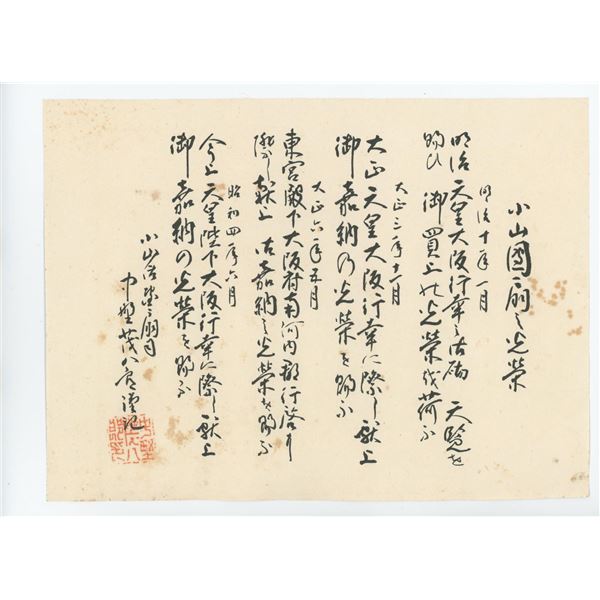 小山團扇之光榮
明治十年一月
明治天皇大阪行幸之砌 天覧を
賜ひ 御買上の光榮を荷ふ
大正三年十一月
大正天皇大阪行幸に際し献上
御嘉納の光榮を賜ふ
大正六年五月
東宮殿下大阪府南河内郡行啓に
際し献上 御嘉納之光榮を賜ふ
昭和四年六月
今上天皇陛下大阪行幸に際し献上
御嘉納の光榮を賜ふ
小山 團扇司
中野茂八 謹記